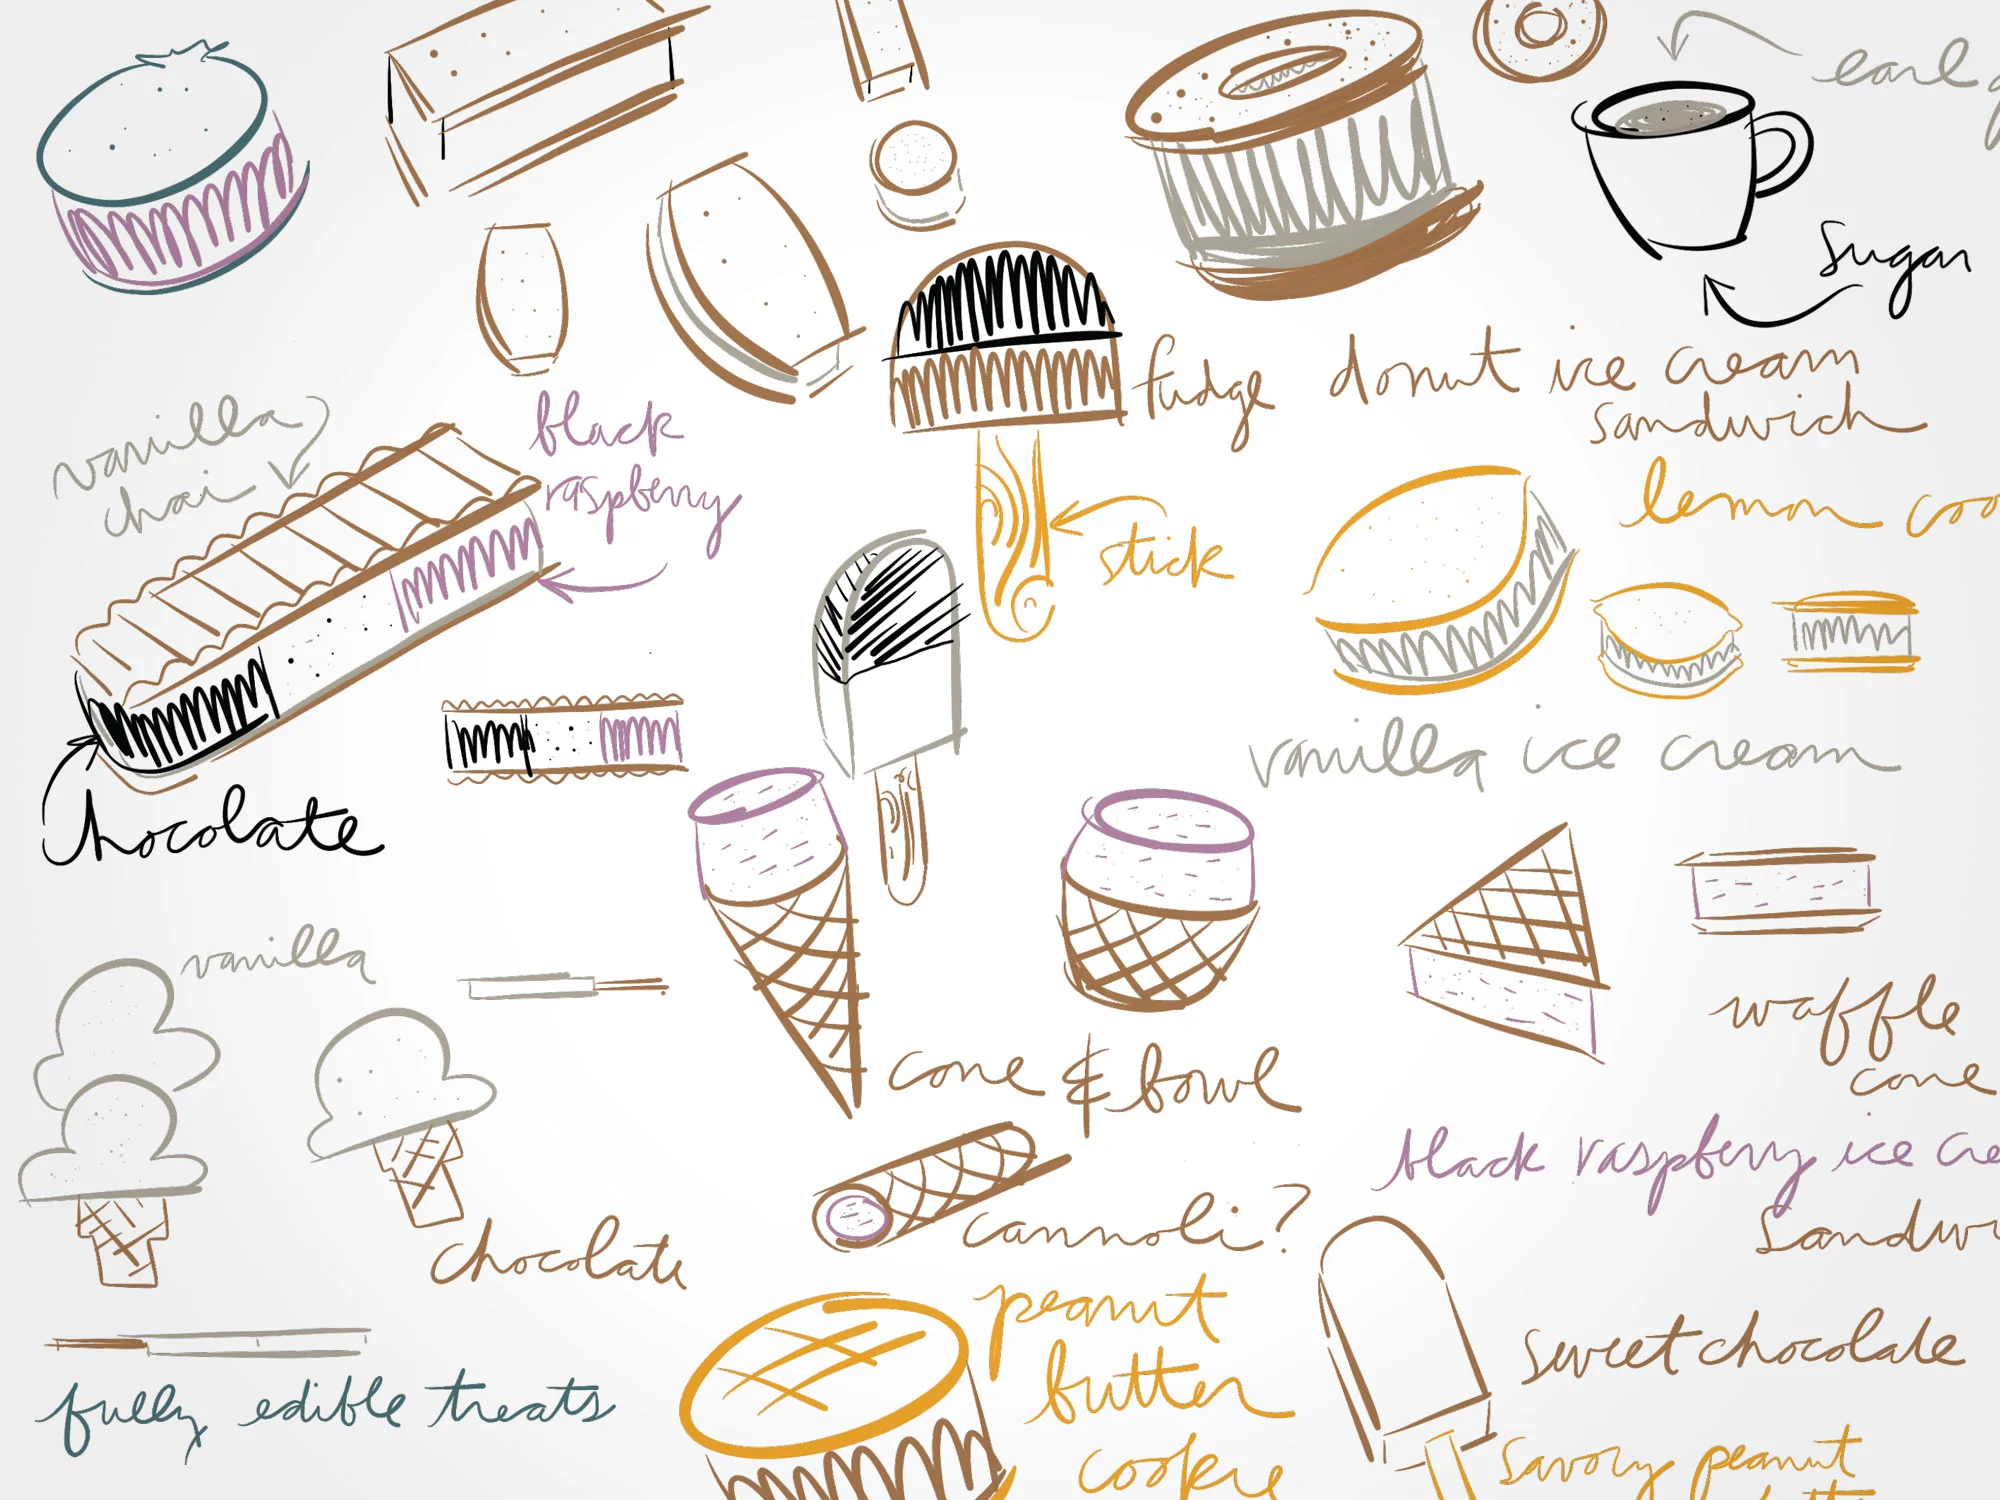 earl
sugar
donut ice cream
sandwich
fudge
stick
vanilla
chai
black
raspberry
chocolate
lemon
vanilla ice cream
vanilla
chocolate
cone & bowl
waffle
cone
black raspberry ice
cannoli?
peanut
butter
cookie
sweet chocolate
savory peanut
fully edible treats